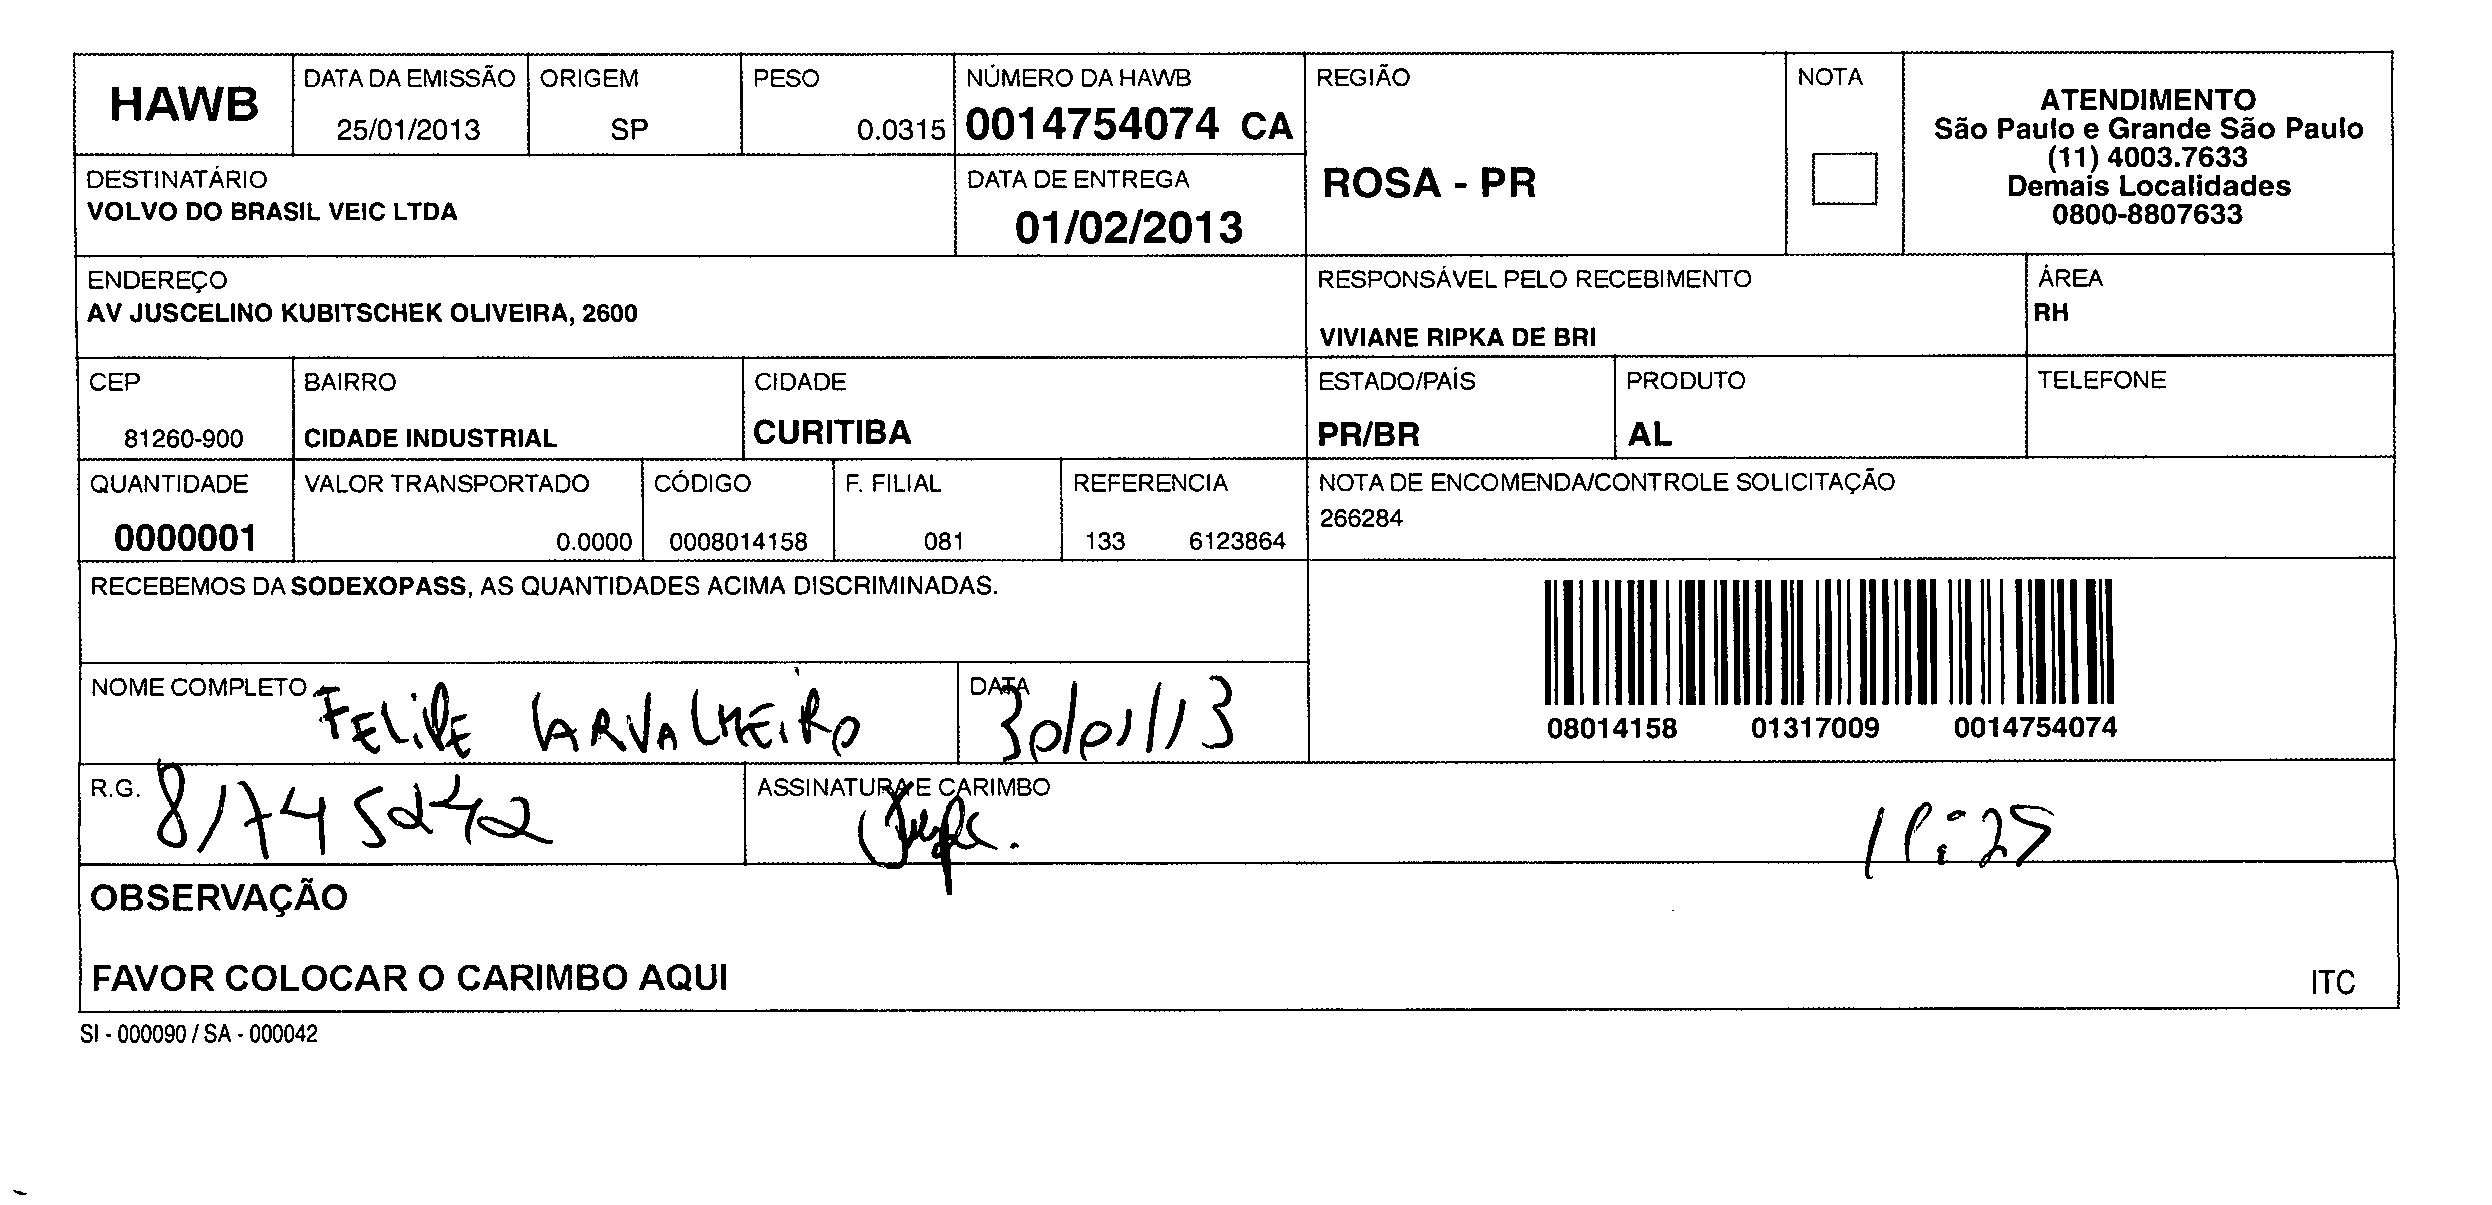 HAWB
DATA DA EMISSÃO
25/01/2013
ORIGEM
SP
PESO
0.0315
NÚMERO DA HAWB
0014754074 CA
REGIÃO
ROSA - PR
NOTA
ATENDIMENTO
São Paulo e Grande São Paulo
(11) 4003.7633
Demais Localidades
0800-8807633
DESTINATÁRIO
VOLVO DO BRASIL VEIC LTDA
DATA DE ENTREGA
01/02/2013
ENDEREÇO
AV JUSCELINO KUBITSCHEK OLIVEIRA, 2600
RESPONSÁVEL PELO RECEBIMENTO
VIVIANE RIPKA DE BRI
ÁREA
RH
CEP
81260-900
BAIRRO
CIDADE INDUSTRIAL
CIDADE
CURITIBA
ESTADO/PAÍS
PR/BR
PRODUTO
AL
TELEFONE
QUANTIDADE
0000001
VALOR TRANSPORTADO
0.0000
CÓDIGO
0008014158
F. FILIAL
081
REFERENCIA
133 6123864
NOTA DE ENCOMENDA/CONTROLE SOLICITAÇÃO
266284
RECEBEMOS DA SODEXOPASS, AS QUANTIDADES ACIMA DISCRIMINADAS.
08014158 01317009 0014754074
NOME COMPLETO
FELIPE CARVALHEIRO
DATA
30/01/13
R.G.
81745242
ASSINATURA E CARIMBO
OBSERVAÇÃO
FAVOR COLOCAR O CARIMBO AQUI
ITC
SI - 000090 / SA - 000042